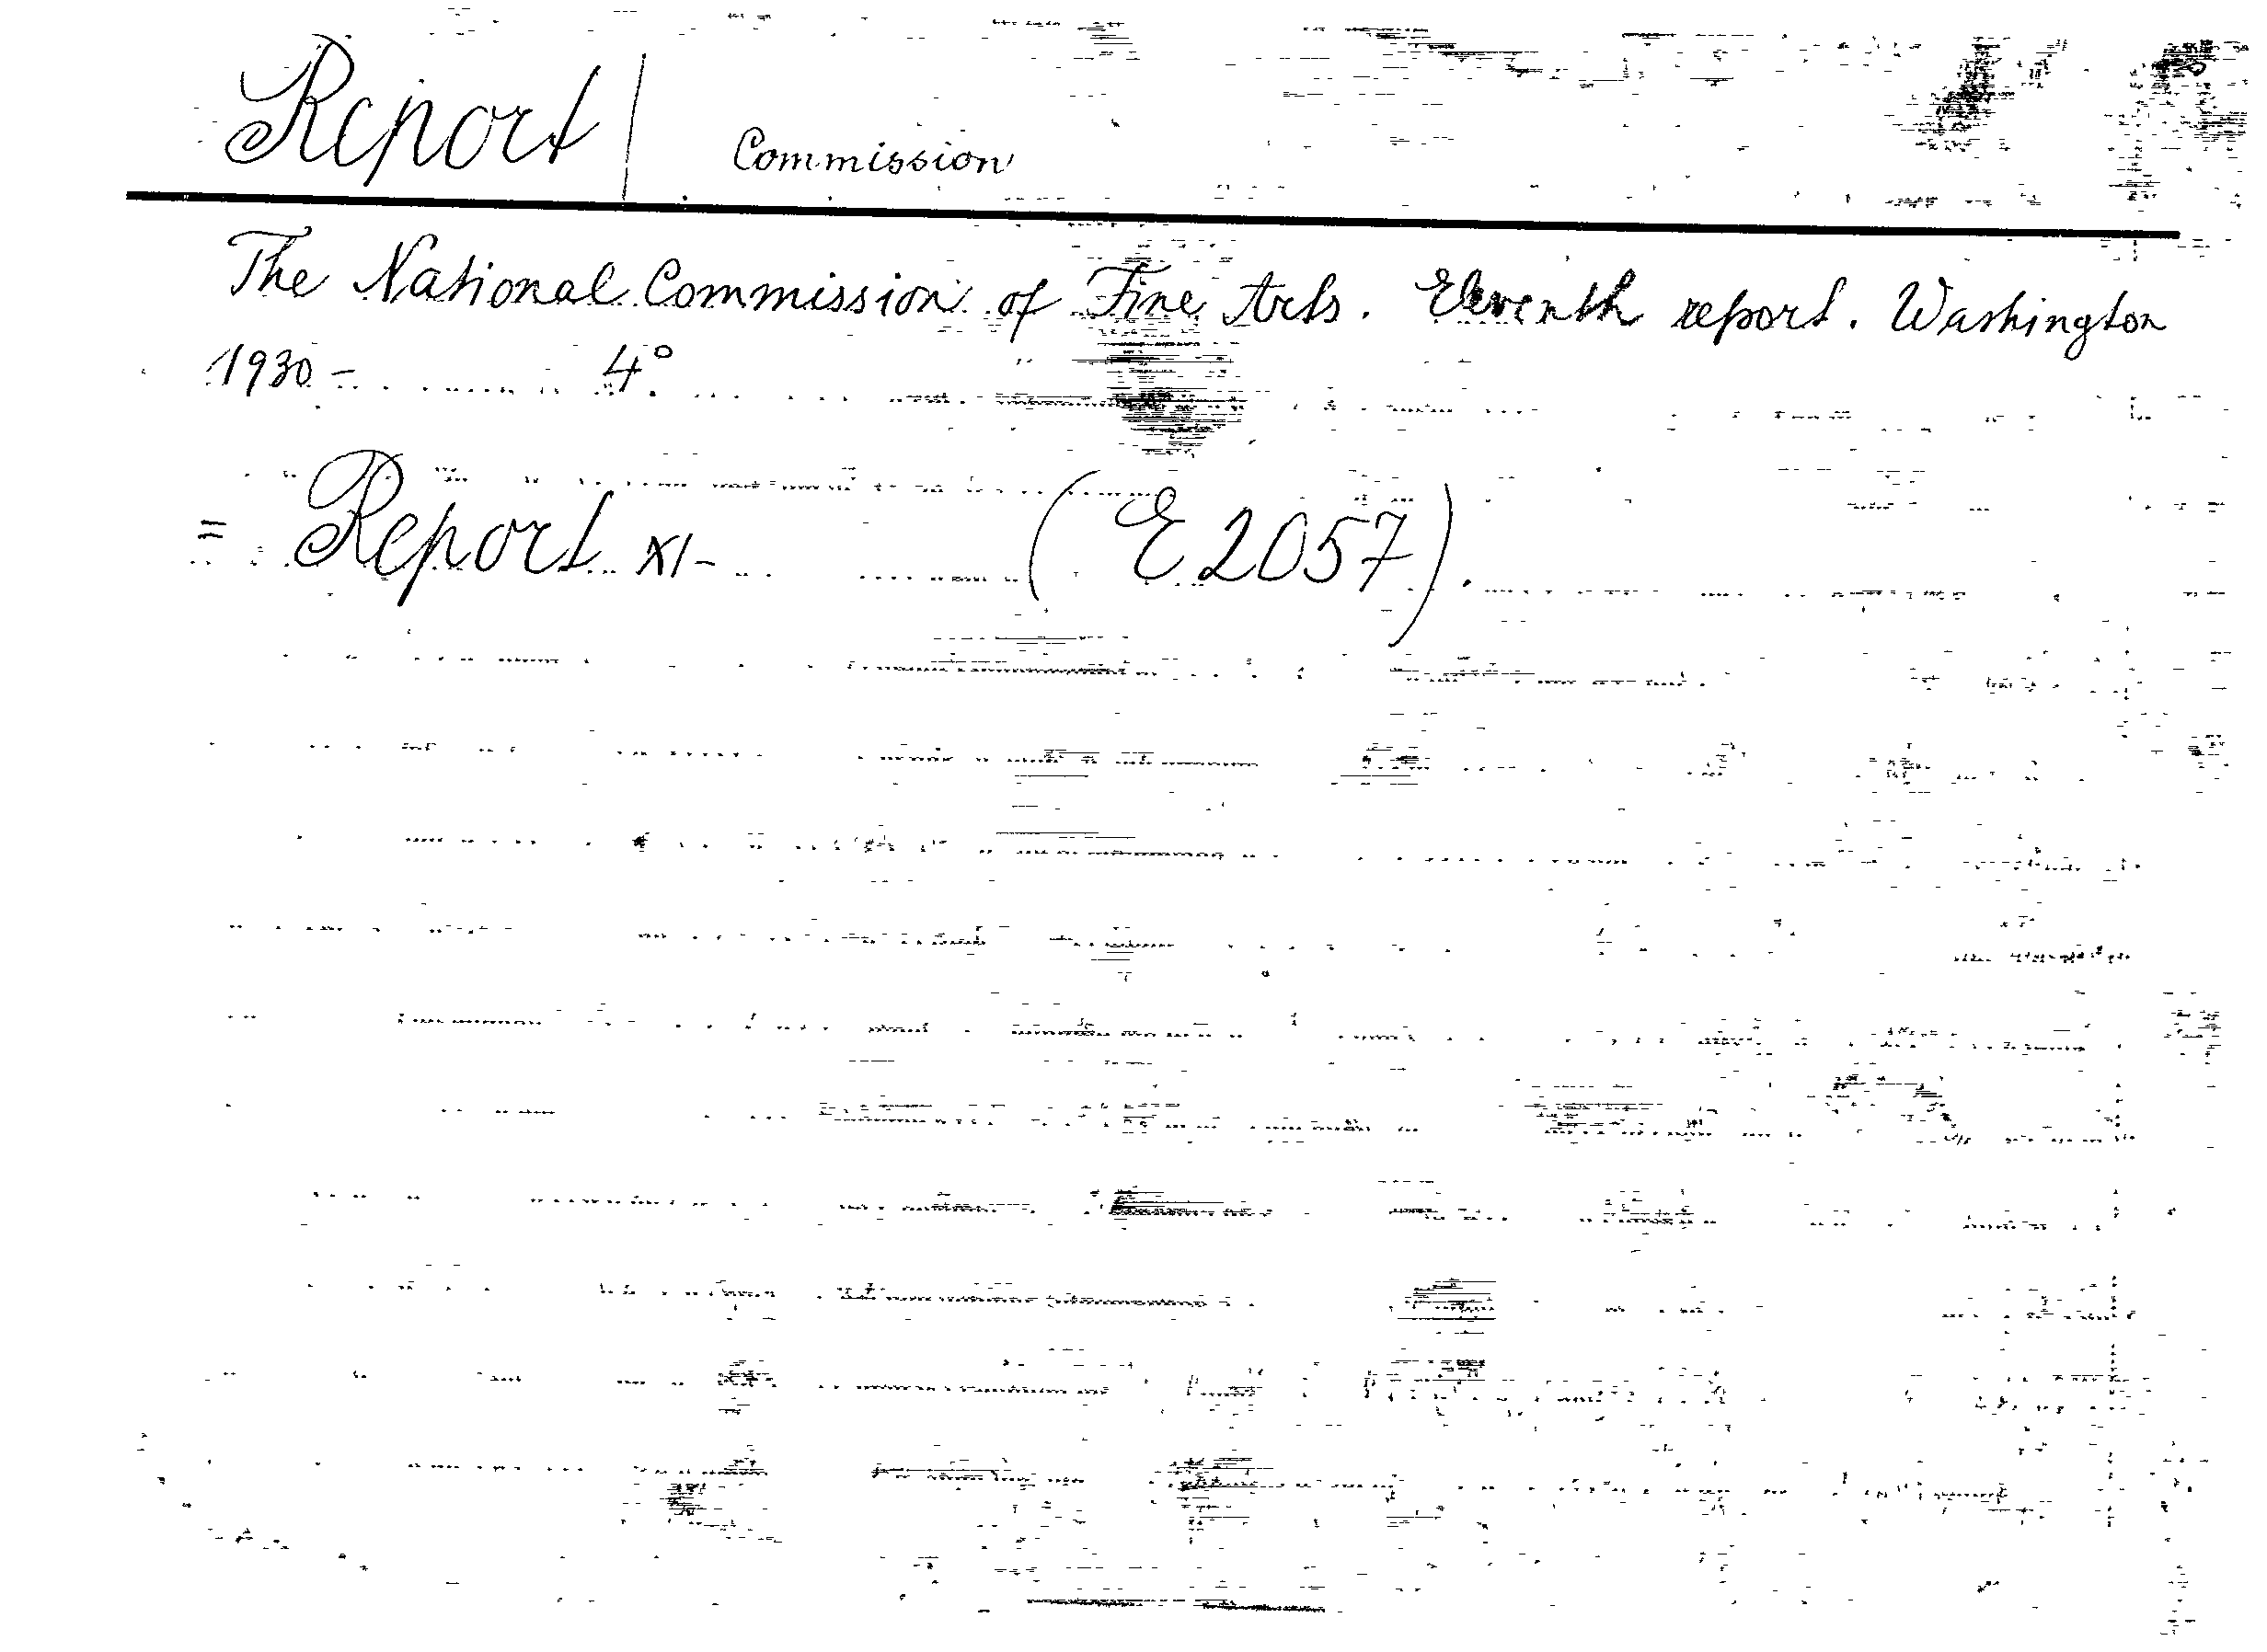 Report | Commission
The National Commission of Fine Arts. Eleventh report. Washington
1930- 4°
= Report XI- (E 2057).